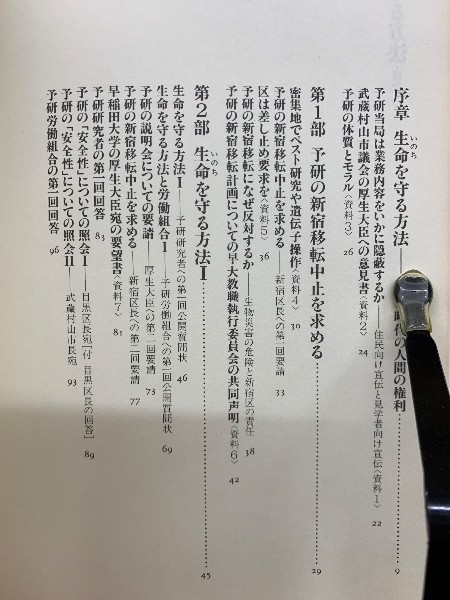 序章 生命を守る方法―時代の人間の権利 9
いのち
予研当局は業務内容をいかに隠蔽するか―住民向け宣伝と見学者向け宣伝〈資料1〉 22
武蔵村山市議会の厚生大臣への意見書〈資料2〉 24
予研の体質とモラル〈資料3〉 26
第1部 予研の新宿移転中止を求める 29
密集地でペスト研究や遺伝子操作〈資料4〉 30
予研の新宿移転中止を求める―新宿区長への第一回要請 33
区は差し止め要求を〈資料5〉 36
予研の新宿移転になぜ反対するか―生物災害の危険と新宿区の責任 38
予研の新宿移転計画についての早大教職執行委員会の共同声明〈資料6〉 42
第2部 生命を守る方法I 45
いのち
生命を守る方法I―予研研究者への第一回公開質問状 46
生命を守る方法と労働組合I―予研労働組合への第一回公開質問状 69
予研の説明会についての要請―厚生大臣への第二回要請 73
予研の新宿移転中止を求める―新宿区長への第二回要請 77
早稲田大学の厚生大臣宛の要望書〈資料7〉 81
予研研究者の第一回回答 83
予研の「安全性」についての照会I―目黒区長宛[付 目黒区長の回答] 89
予研の「安全性」についての照会II―武蔵村山市長宛 93
予研労働組合の第一回回答 96
方法